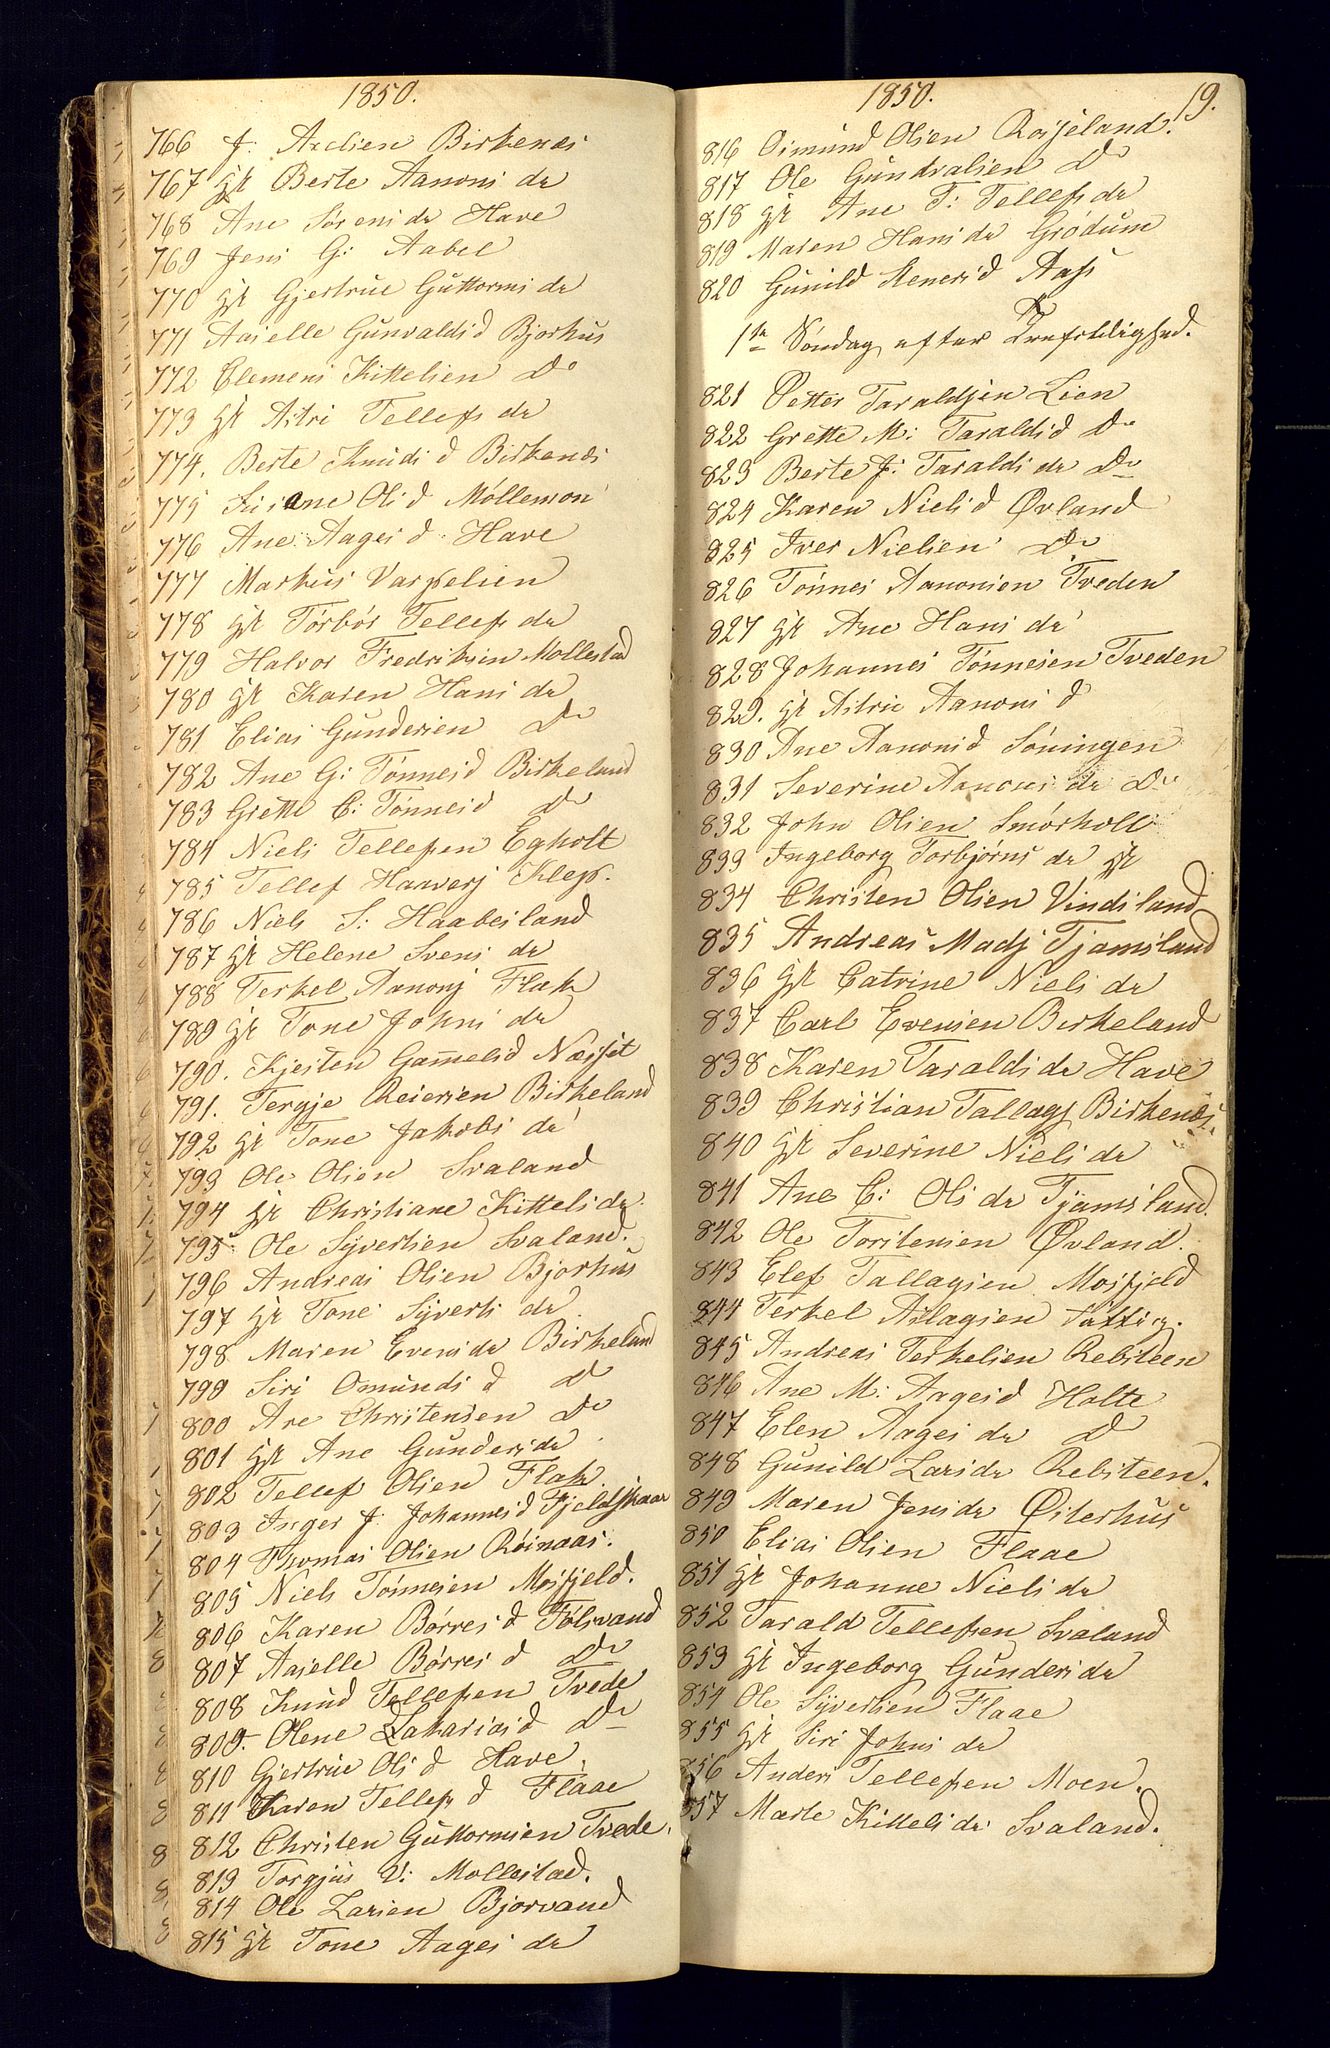 1850.
766 J: Axelsen Birkenæs
767 gk Berte Aanons dr
768 Ane Sørens dr Have
769 Jens G: Aabel
770 gk Gjertrue Guttorms dr
771 Aaselle Gunvaldsd Bjorhus
772 Clemens Kittelsen Do
773 gk Astri Tellefs dr
774. Berte Knuds d Birkenæs
775 Ols d Møllemon
776 Ane Aages d. Have
777 Markus Vasselsen
778 gk Torbor Tellefs dr
779 Halvor Fredriksen Mollestad
780 gk Karen Hans dr
781 Elias Gundersen Do
782 Ane G: Tønnesd Birkeland
783 Grette C: Tønnesd Do
784 Niels Tellefsen Egholt
785 Tellef Haaversj Klep.
786 Niels S: Haabesland
787 gk Helene Svens dr
788 Terkel Aanonsj Flak
789 gk Tone Johns dr
790. Kjesten Gam̅elsd Næsset
791. Tergje Reiersen Birkeland
792 gk Tone Jakobs dr
793 Ole Olsen Svaland
794 gk Christiane Kittelsdr.
795 Ole Syvertsen Svaland.
796 Andreas Olsen Bjorhus
797 gk Tone Syverts dr
798 Maren Evensdr Birkeland
799 Siri Omunds d Do
800 Are Christensen Do
801 gk Ane Gundersdr
802 Tellef Olsen Flak
803 Inger J: Johannesd Fjeldskaar
804 Thomas Olsen Røinaas.
805 Niels Tønnesen Mosfjeld.
806 Karen Børres d Følsvand
807 Aaselle Børres d Do
808 Knud Tellefsen Tvede
809. Olene Zakariasd Do
810 Gjertrue Ols d Have.
811 Karen Tellefs d Flaae
812 Christen Guttormsen Tvede.
813 Torgjus V: Mollestad.
814 Ole Larsen Bjorvand
815 gk Tone Aages dr
1850. 19.
816 Osmund Olsen Rosseland.
817 Ole Gundvalsen Do
818 gk Ane T: Tellefs dr
819 Maren Hans dr Grødum
820 Gunild Stenersd Aas
1ste Søndag efter Trefoldighed.
821 Petter Taraldsen Lien
822 Grette M: Taraldsd Do
823 Berte J: Taralds dr Do
824 Karen Niels d Øvland
825 Iver Nielsen Do
826 Tønnes Aanonsen Tveden
827 gk Ane Hans dr
828 Johannes Tønnesen Tveden
829. gk Astrie Aanons d
830 Ane Aanonsd Søningen
831 Severine Aanons dr Do
832 John Olsen Smørholt
833 Ingeborg Torbjørns dr gk
834 Christen Olsen Vindsland
835 Andreas Madsj Tjamsland
836 gk Catrine Niels dr
837 Carl Evensen Birkeland
838 Karen Taralds dr Have
839 Christian Tallagsj Birkenæs.
840 gk Severine Niels dr
841 Ane C: Ols dr Tjamsland.
842 Ole Torstensen Øvland.
843 Elef Tallagsen Mosfjeld
844 Terkel Aslagsen
845 Andreas Terkelsen Rebsteen
846 Ane M: Aagesd Holte
847 Elen Aages dr Do
848 Gunild Larsdr Rebsteen.
849 Maren Jensdr Østerhus
850 Elias Olsen Flaae
851 gk Johanne Niels dr
852 Tarald Tellefsen Svaland
853 gk Ingeborg Gunders dr
854 Ole Syvertsen Flaae
855 gk Siri Johns dr
856 Anders Tellefsen Moen.
857 Marte Kittels dr Svaland.